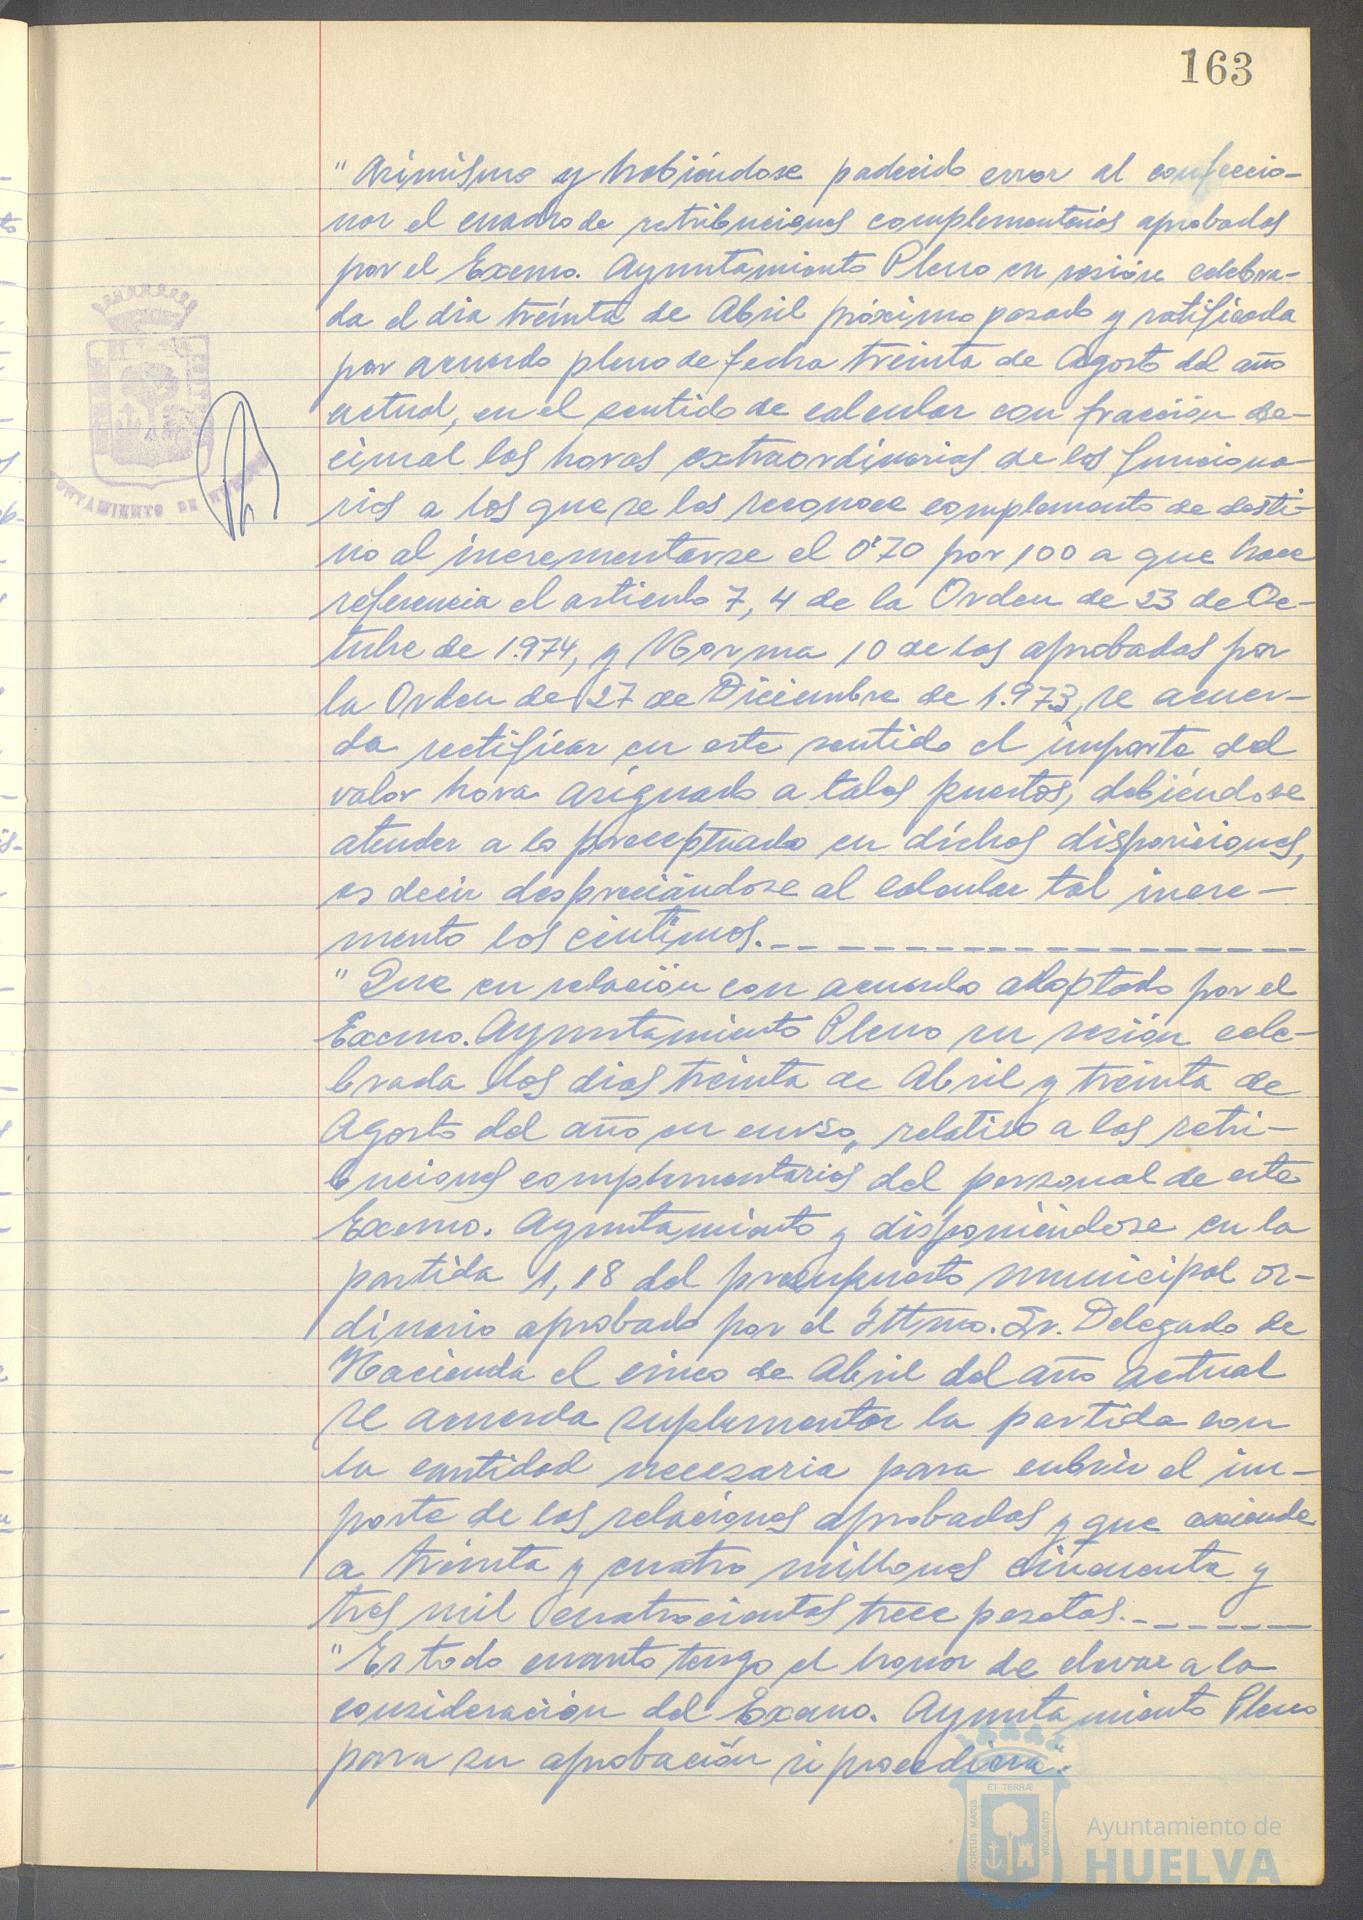 163
" Asimismo y habiéndose padecido error al confeccio-
nar el cuadro de retribuciones complementarias aprobadas
por el Excmo. Ayuntamiento Pleno en sesión celebra-
da el dia treinta de Abril próximo pasado y ratificada
por acuerdo pleno de fecha treinta de Agosto del año
actual, en el sentido de calcular con fracción de-
cimal las horas extraordinarias de los funciona-
rios a los que se les reconoce complemento de desti-
no al incrementarse el 0'70 por 100 a que hace
referencia el articulo 7, 4 de la Orden de 23 de Oc-
tubre de 1.974, y Norma 10 de las aprobadas por
la Orden de 27 de Diciembre de 1.973, se acuer-
da rectificar en este sentido el importe del
valor hora asignado a tales puestos, debiéndose
atender a lo preceptuado en dichas disposiciones,
es decir despreciándose al calcular tal incre-
mento los céntimos.
" Que en relación con acuerdo adoptado por el
Excmo. Ayuntamiento Pleno en sesión cele-
brada los dias treinta de Abril y treinta de
Agosto del año en curso, relativo a las retri-
buciones complementarias del personal de este
Excmo. Ayuntamiento y disponiéndose en la
partida 1,18 del presupuesto municipal or-
dinario aprobado por el Iltmo. Sr. Delegado de
Hacienda el cinco de Abril del año actual
se acuerda suplementar la partida con
la cantidad necesaria para cubrir el im-
porte de las relaciones aprobadas y que asciende
a treinta y cuatro millones cincuenta y
tres mil cuatrocientas trece pesetas.
" Es todo cuanto tengo el honor de elevar a la
consideración del Excmo. Ayuntamiento Pleno
para su aprobación si procediera.
AYUNTAMIENTO DE HUELVA
PORTUS MARIS
ET TERRÆ
CUSTODIA
Ayuntamiento de
HUELVA